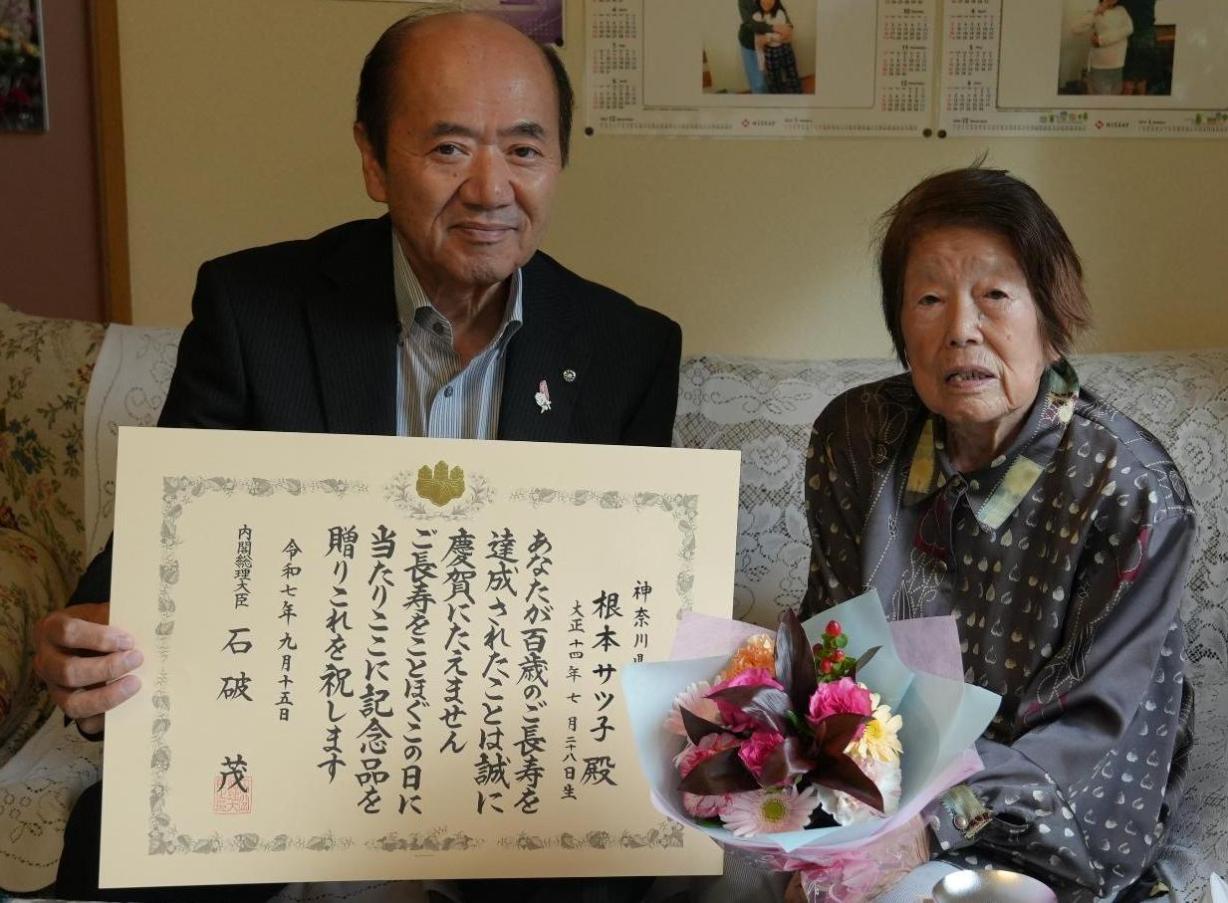 神奈川県
根本サツ子殿
大正十四年七月二八日生
あなたが百歳のご長寿を
達成されたことは誠に
慶賀にたえません
ご長寿をことほぐこの日に
当たりここに記念品を
贈りこれを祝します
令和七年九月十五日
内閣総理大臣 石破 茂
NISSAY
NISSAY